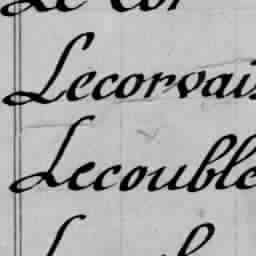 Le Cor
Lecorvais
Lecouble